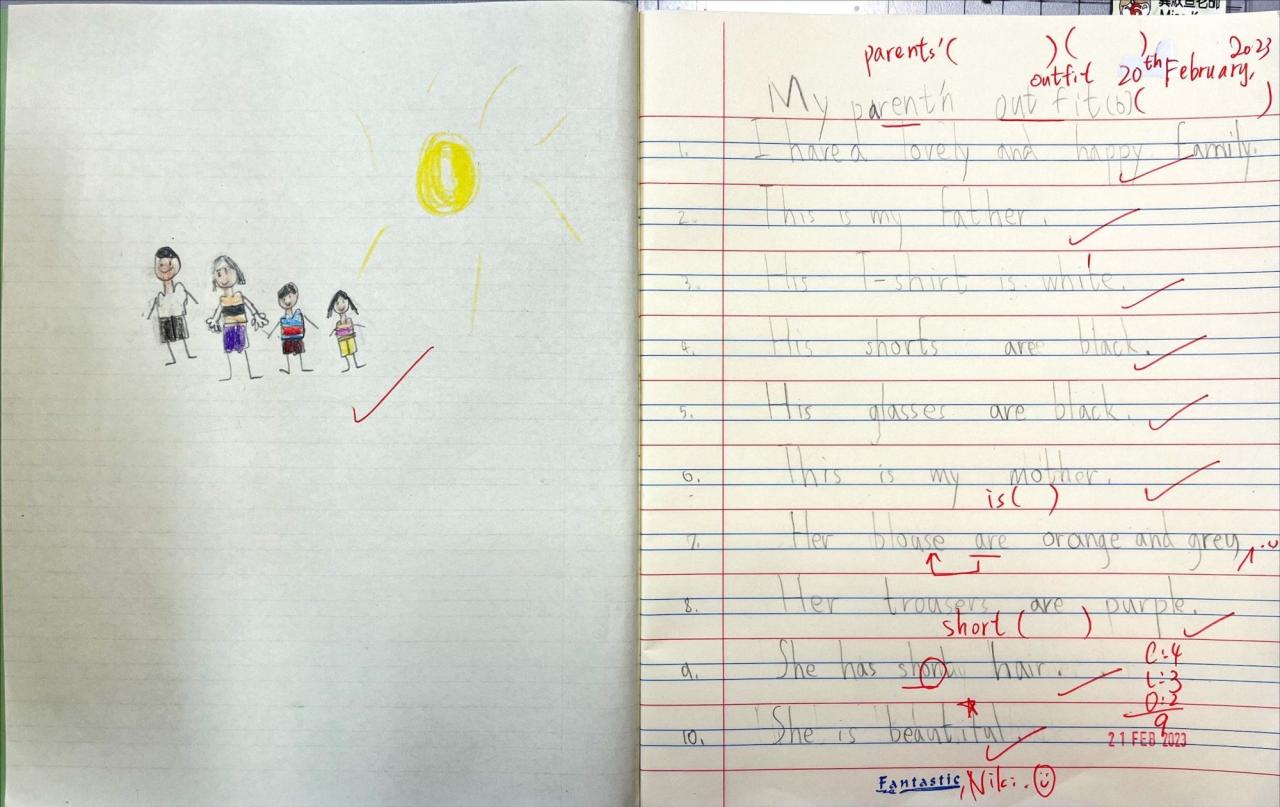 parents' (      ) (      ) 2023
outfit 20th February,
My parent'n out fit (b) (      )
1. I have a lovely and happy family.
2. This is my father.
3. His T-shirt is white.
4. His shorts are black.
5. His glasses are black.
6. This is my mother.
is (  )
7. Her blouse are orange and grey
8. Her trousers are purple.
short (      )
9. She has hair.
C:4
L:3
O:2
9
10. She is beautiful.
21 FEB 2023
Fantastic, Niki.